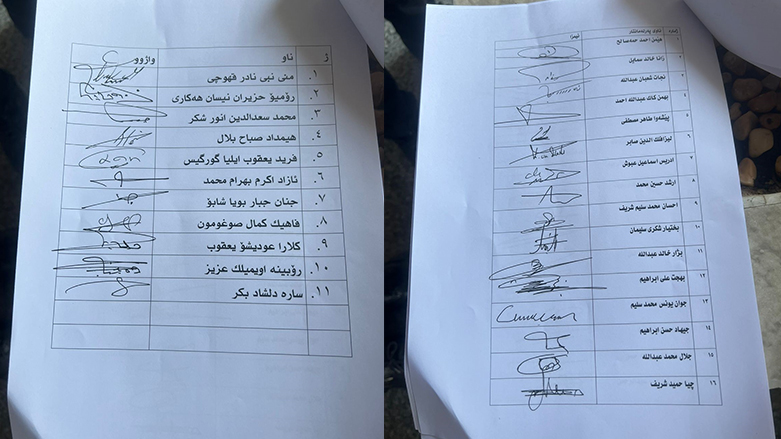 ژ ناو واژوو
١. منى نبى نادر قهوجى
٢. رۆميۆ حزيران نيسان هەكارى
٣. محمد سعدالدين انور شكر
٤. هيمداد صباح بلال
٥. فريد يعقوب ايليا گورگيس
٦. ئازاد اكرم بهرام محمد
٧. جنان جبار بويا شابۆ
٨. فاهيك كمال صوغومون
٩. كلارا عوديشۆ يعقوب
١٠. رۆبينه اويميلك عزيز
١١. ساره دلشاد بكر
ژماره ناوى پەرلەمانتار ئیمزا
١ هيمن احمد حمەصالح
٢ زانا خالد سمايل
٣ نجات شعبان عبدالله
٤ بهمن كاك عبدالله احمد
٥ پێشەوا طاهر مصطفى
٦ ليزا فلك الدين صابر
٧ ادريس اسماعيل عبوش
٨ ارشد حسين محمد
٩ احسان محمد سليم شريف
١٠ بختيار شكرى سليمان
١١ بژار خالد عبدالله
١٢ بهجت على ابراهيم
١٣ جوان يونس محمد سليم
١٤ جيهاد حسن ابراهيم
١٥ جلال محمد عبدالله
١٦ چيا حميد شريف